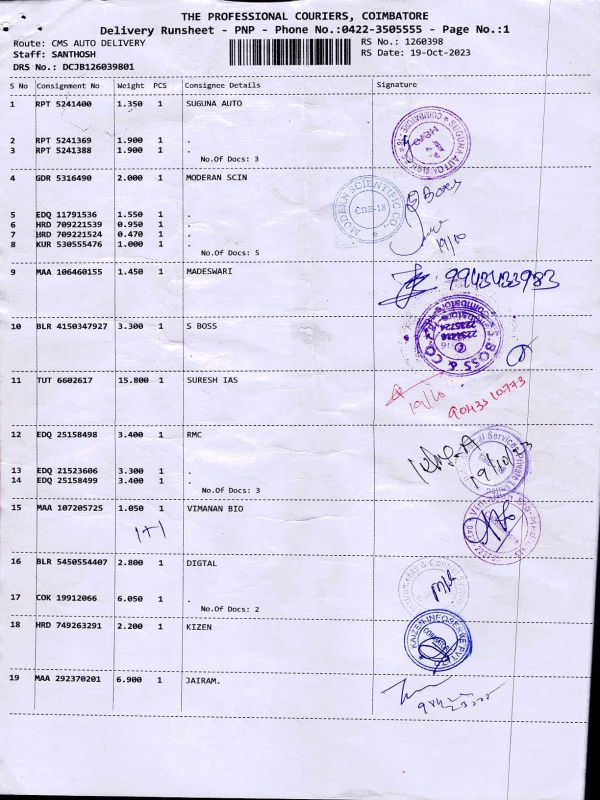 THE PROFESSIONAL COURIERS, COIMBATORE
Delivery Runsheet - PNP - Phone No.:0422-3505555 - Page No.:1
Route: CMS AUTO DELIVERY RS No.: 1260398
Staff: SANTHOSH RS Date: 19-Oct-2023
DRS No.: DCJB126039801
S No Consignment No Weight PCS Consignee Details Signature
1 RPT 5241400 1.350 1 SUGUNA AUTO
2 RPT 5241369 1.900 1 .
3 RPT 5241388 1.900 1 .
No.Of Docs: 3
4 GDR 5316490 2.000 1 MODERAN SCIN
MODERN SCIENTIFIC CO.
CBE-18
5 EDQ 11791536 1.550 1 .
6 HRD 709221539 0.950 1 .
7 HRD 709221524 0.470 1 .
8 KUR 530555476 1.000 1 .
19/10
No.Of Docs: 5
9 MAA 106460155 1.450 1 MADESWARI
10 BLR 4150347927 3.300 1 S BOSS
BOSS & CO
11 TUT 6602617 15.800 1 SURESH IAS
19/10
12 EDQ 25158498 3.400 1 RMC
13 EDQ 21523606 3.300 1 .
14 EDQ 25158499 3.400 1 .
No.Of Docs: 3
15 MAA 107205725 1.050 1 VIMANAN BIO
1+1
16 BLR 5450554407 2.800 1 DIGTAL
17 COK 19912066 6.050 1 .
No.Of Docs: 2
18 HRD 749263291 2.200 1 KIZEN
19 MAA 292370201 6.900 1 JAIRAM.